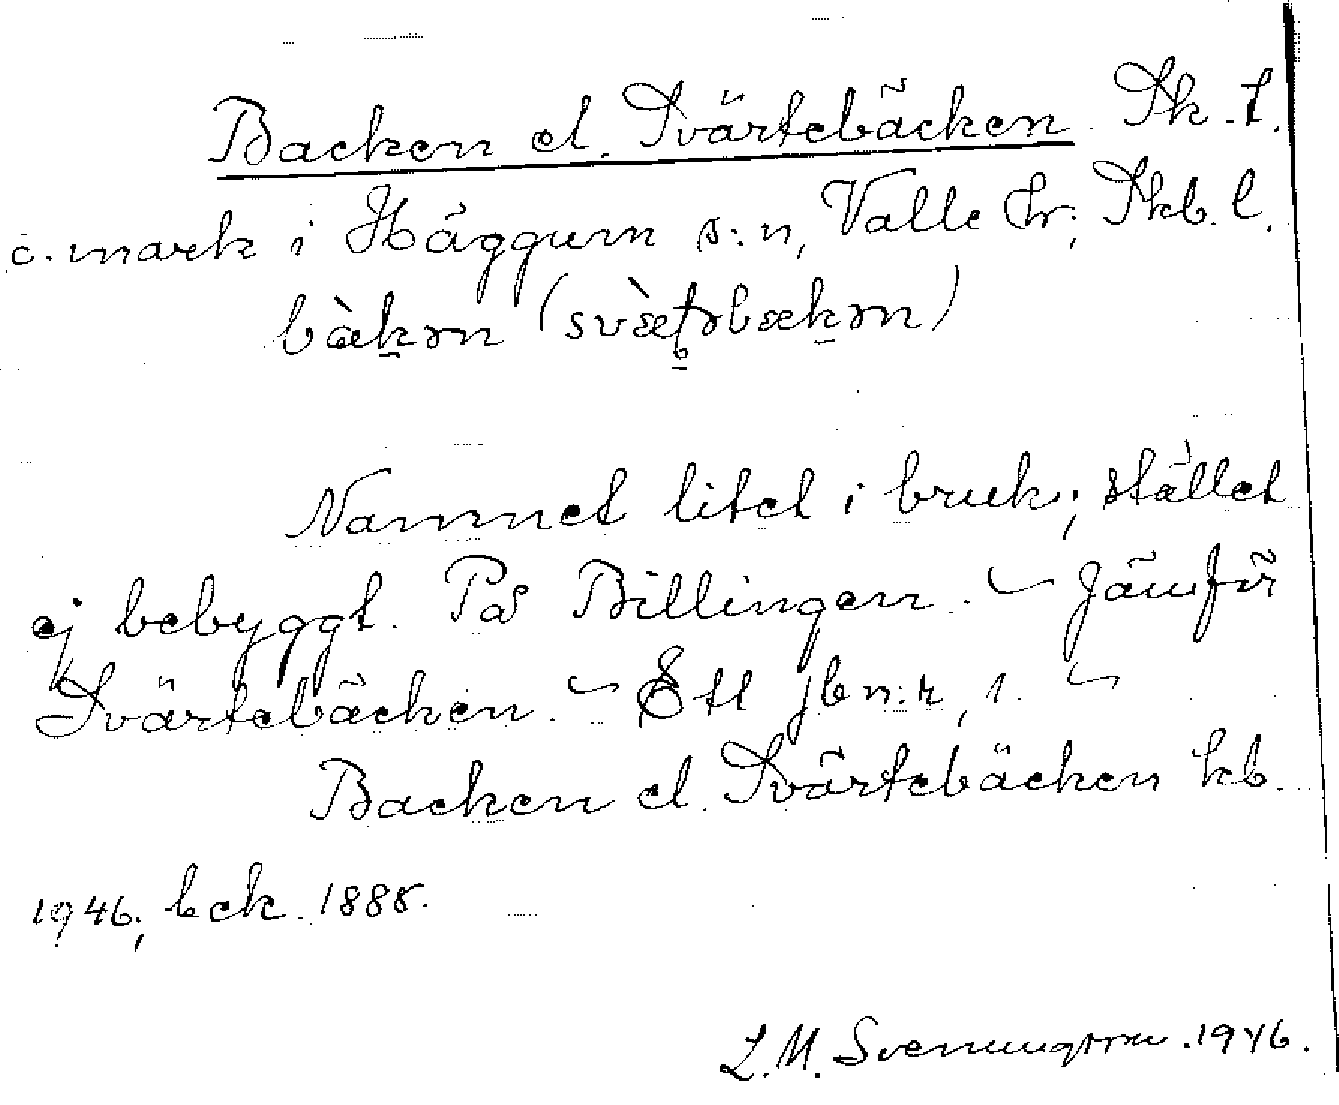 Backen el. Svärtebäcken Sk. t.
o. mark i Häggum s:n, Valle hr; Skb. l.
bàkən (svæ̀ʈəbækən)
Namnet litet i bruk; stället
ej bebyggt. På Billingen. – Jämför
Svärtebäcken. – Ett jbn:r, 1. –
Backen el. Svärtebäcken kb.
1946; bck. 1888.
L. M. Svenungsson. 1946.